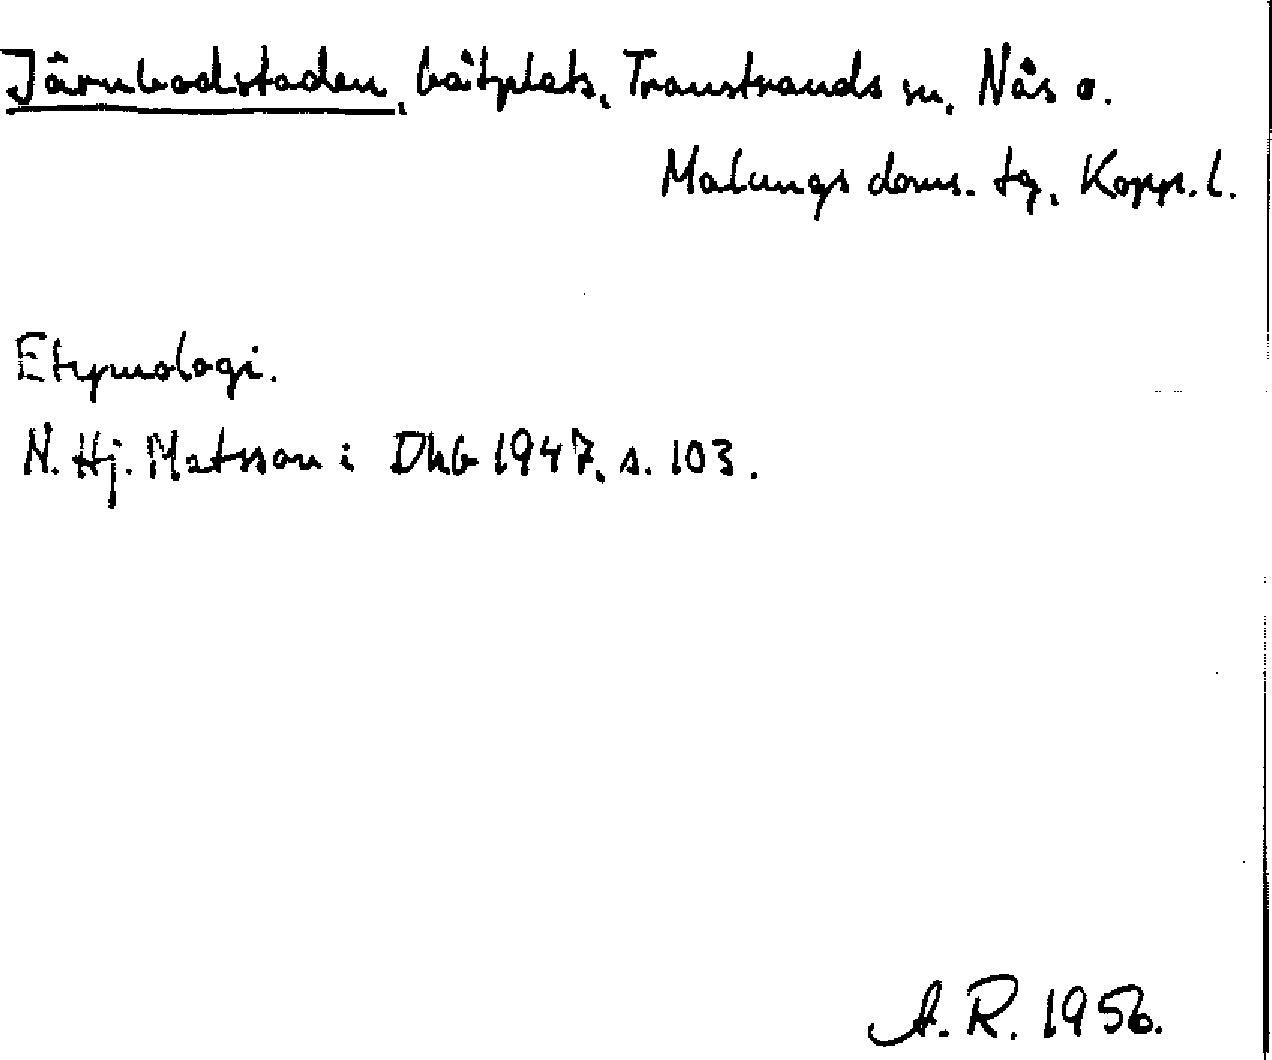 Järnbodstaden, båtplats, Transtrands sn, Nås o.
Malungs doms. tg, Kopp. l.
Etymologi.
N. Hj. Matsson i Dhb 1947, s. 103.
A. R. 1956.